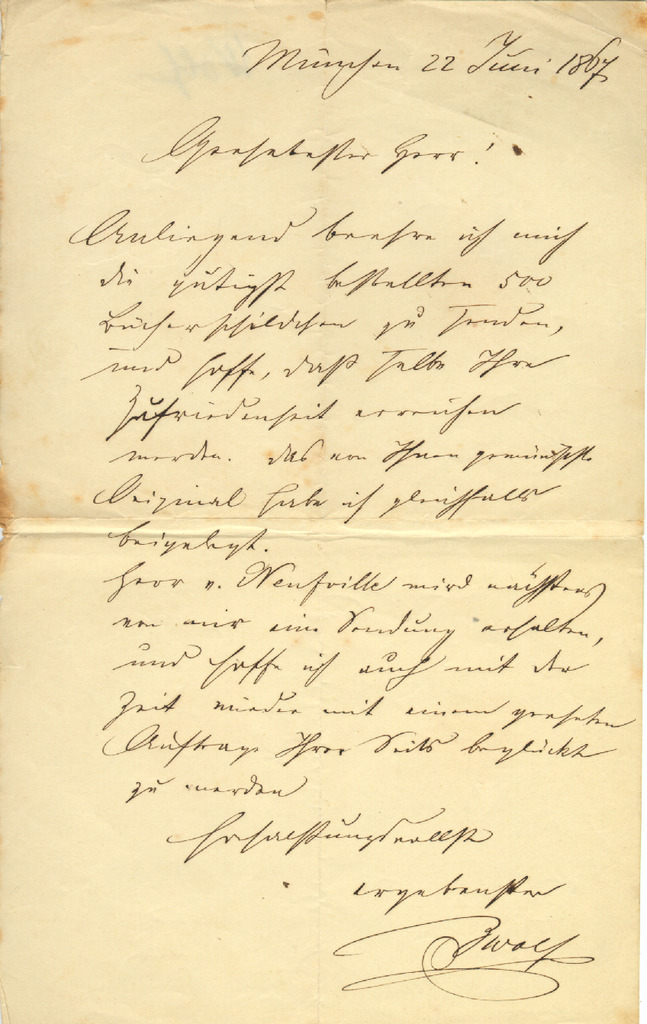 München 22 Juni 1867
Geehrtester Herr!
Anliegend beehre ich mich
die gütigst bestellten 500
Bücherschildchen zu senden,
und hoffe, daß selbe Ihre
Zufriedenheit erreichen
werden. Das von Ihnen gewünschte
Original habe ich gleichfalls
beigelegt.
Herr v. Neufville wird nächstens
von mir eine Sendung erhalten,
und hoffe ich auch mit der
Zeit wieder mit einem geehrten
Auftrage Ihrer Seits beglückt
zu werden
Hochachtungsvollst
ergebenster